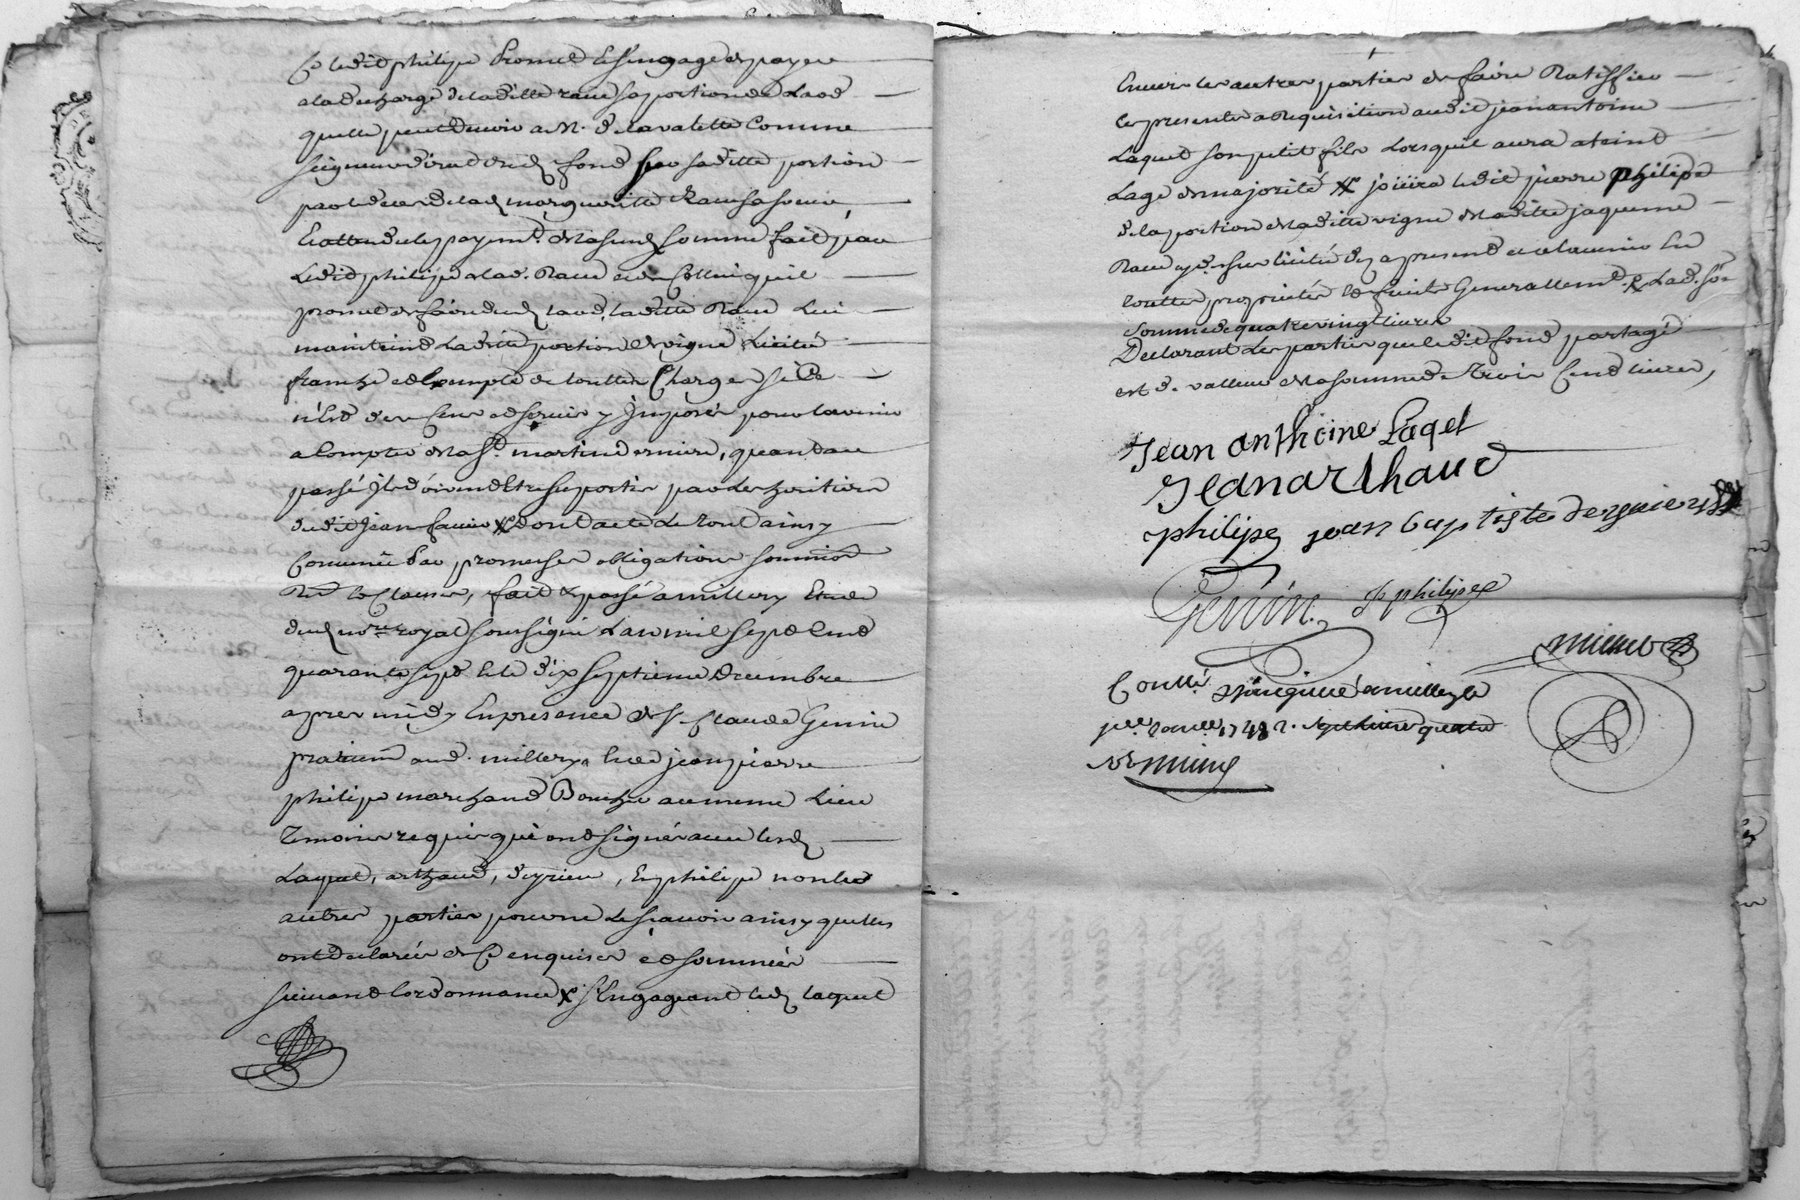 ledit philipe promet et s'engage de payer
a la decharge de laditte raue sa portion de laod
quelle peut devoir a M. de lavalette comme
seigneur direct dud fond pour saditte portion
par le deces de lad margueritte Raue sa soeur
Et attendu le payement de la susd somme fait par
Ledit philipe a lad. Raue et de celluy quil
promet de faire dud laod, laditte Raue Lui
maintient laditte portion de vigne licitée
franche et Exempte de touttes Charges si Ce
n'est des cens et servis y Imposés pour lavenir
a Compter de la St martin derniere, quand au
passé Ils doivent Etre suportés par les heritiers
dudit Jean faure dont acte le tout ainsy
Convenu par promesses obligations soumions
Ren et Clauses, fait & passé a millery Etude
dud nore royal soussigné Lan mil sept Cent
quarante sept & le dix septieme Decembre
apres midy En presence de Sr Claude Genin
praticien aud. millery & de jean pierre
philipe marchand Boucher au meme Lieu
Temoins requis qui ont signé avec lesd
Laquet, arthaud, deyrieu, & philipe non les
autres parties pour ne le scavoir ainsy quelles
ont declaré de ce enquises et sommées
suivant lordonnance s'Engageant led laquet
Envers les autres parties de faire Ratiffier
les presentes a Requisition audit jean antoine
Laquet son petit fils Lorsquil aura ateint
Lage de majorité & joüira ledit pierre philipe
de la portion de laditte vigne de laditte jaqueme
Raue licitée des a present et a lavenir En
toutte proprieté & de suite Generallement
somme de quatre vingt livres
Declarant les parties que ledit fond partagé
est de valleur de la somme de Trois Cent livres,
Jean anthoine Laqet
Jean arthaud
philipe jean baptiste
Genin. Jp philipe
Conllé a millery le
1748